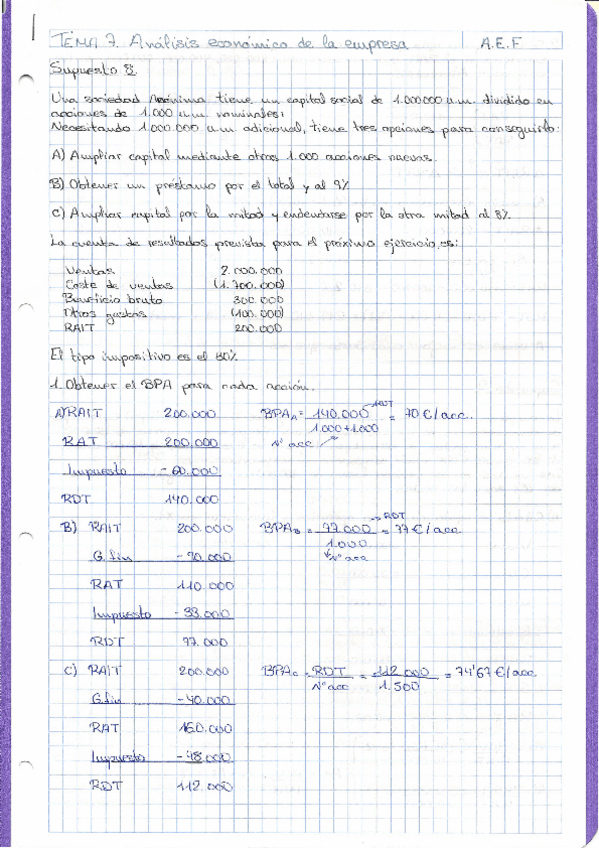 TEMA 7. Análisis económico de la empresa A.E.F
Supuesto 8.
Una sociedad Anónima tiene un capital social de 1.000.000 u.m. dividido en
acciones de 1.000 u.m. nominales:
Necesitando 1.000.000 u.m adicional, tiene tres opciones para conseguirlo:
A) Ampliar capital mediante otras 1.000 acciones nuevas.
B) Obtener un préstamo por el total y al 9%
C) Ampliar capital por la mitad y endeudarse por la otra mitad al 8%
La cuenta de resultados prevista para el próximo ejercicio es:
Ventas 2.000.000
Coste de ventas (1.700.000)
Beneficio bruto 300.000
Otros gastos (100.000)
RAIT 200.000
El tipo impositivo es el 30%
1. Obtener el BPA para cada acción.
A) RAIT 200.000 BPA_A = 140.000 → RDT = 70 €/acc.
1.000+1.000
RAT 200.000 Nº acc
Impuesto - 60.000
RDT 140.000
B) RAIT 200.000 BPA_B = 77.000 → RDT = 77 €/acc
1.000
G. fin - 90.000 Nº acc
RAT 110.000
Impuesto - 33.000
RDT 77.000
C) RAIT 200.000 BPA_C = RDT = 112.000 = 74'67 €/acc
Nº acc 1.500
G. fin - 40.000
RAT 160.000
Impuesto - 48.000
RDT 112.000